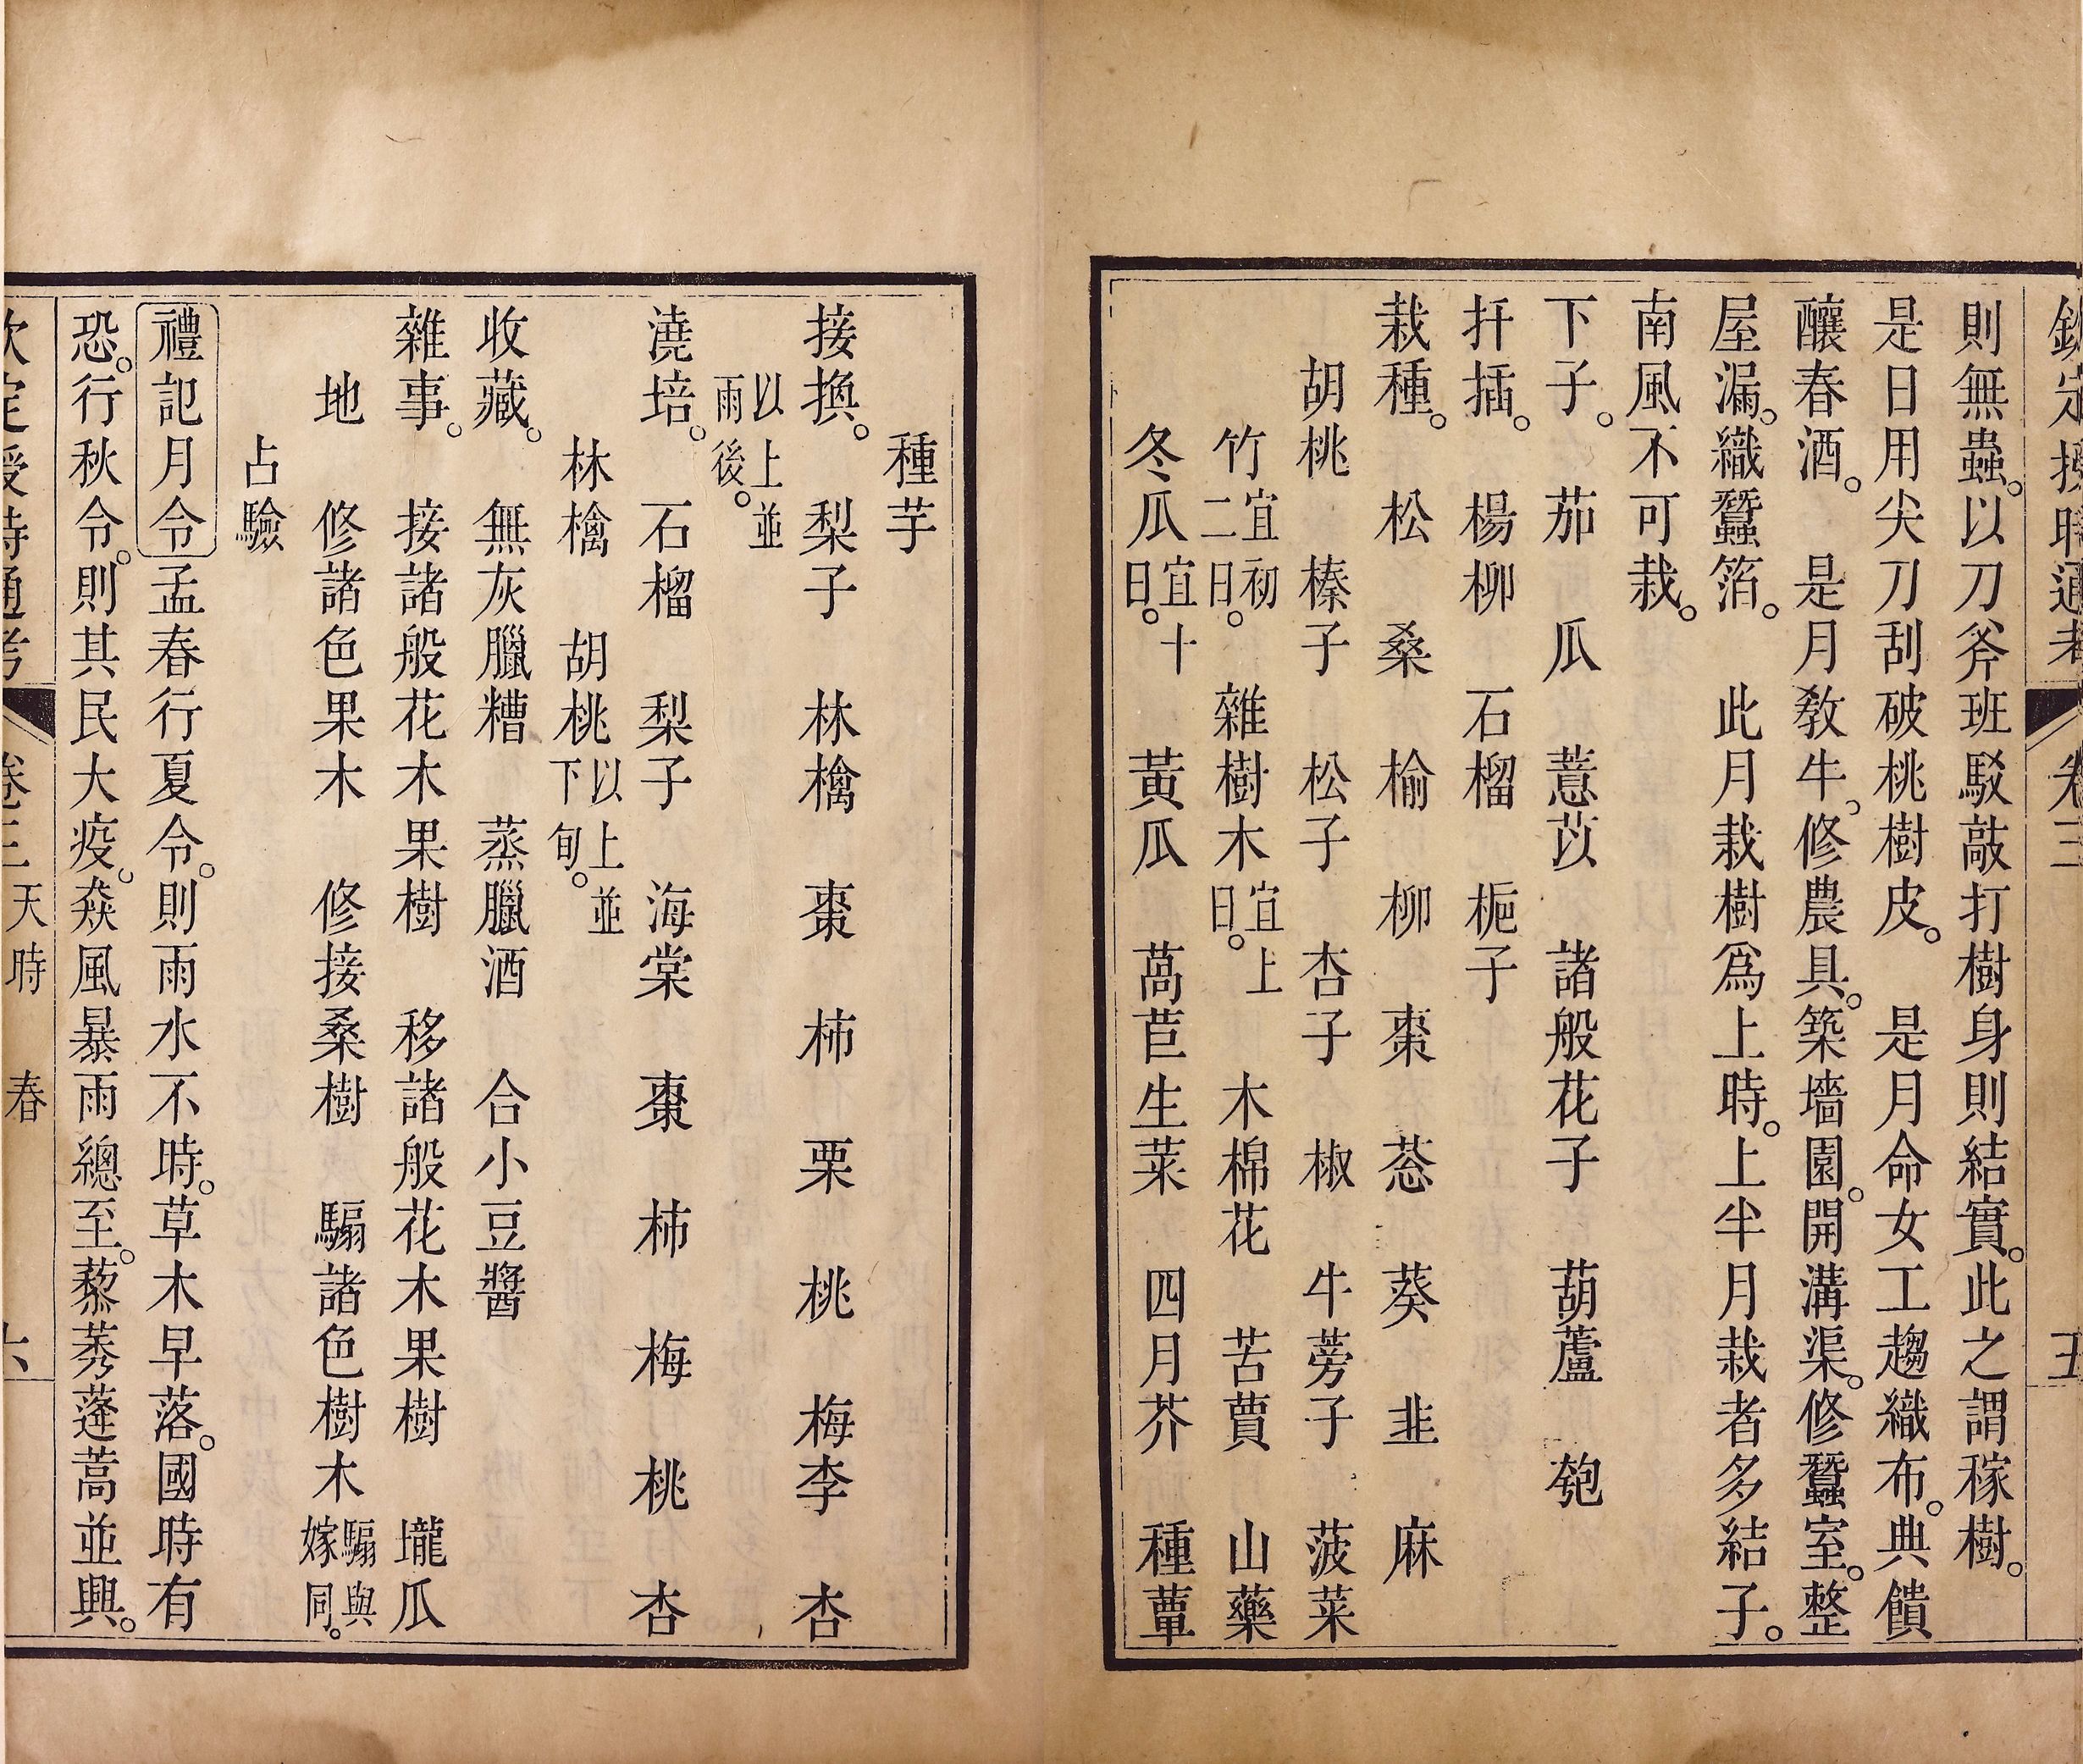 欽定授時通考 卷三 五
則無蟲。以刀斧班駁敲打樹身則結實。此之謂稼樹。
是日用尖刀刮破桃樹皮。 是月命女工趨織布。典饋
釀春酒。 是月教牛。修農具。築墻園。開溝渠。修蠶室。整
屋漏。織蠶箔。 此月栽樹爲上時。上半月栽者多結子。
南風不可栽。
下子。 茄 瓜 薏苡 諸般花子 葫蘆 匏
扦插。 楊柳 石榴 梔子
栽種。 松 桑 榆 柳 棗 葱 葵 韭 麻
胡桃 榛子 松子 杏子 椒 牛蒡子 菠菜
竹宜初二日。 雜樹木宜上日。 木棉花 苦蕒 山藥
冬瓜宜十日。 黃瓜 萵苣生菜 四月芥 種蕈
種芋
接換。 梨子 林檎 棗 柿 栗 桃 梅李 杏
以上並雨後。
澆培。 石榴 梨子 海棠 棗 柿 梅 桃 杏
林檎 胡桃以上並下旬。
收藏。 無灰臘糟 蒸臘酒 合小豆醬
雜事。 接諸般花木果樹 移諸般花木果樹 壠瓜
地 修諸色果木 修接桑樹 騸諸色樹木騸與嫁同。
占驗
禮記月令 孟春行夏令。則雨水不時。草木早落。國時有
恐。行秋令。則其民大疫。猋風暴雨總至。藜莠蓬蒿並興。
欽定授時通考 卷三 天時 春 六